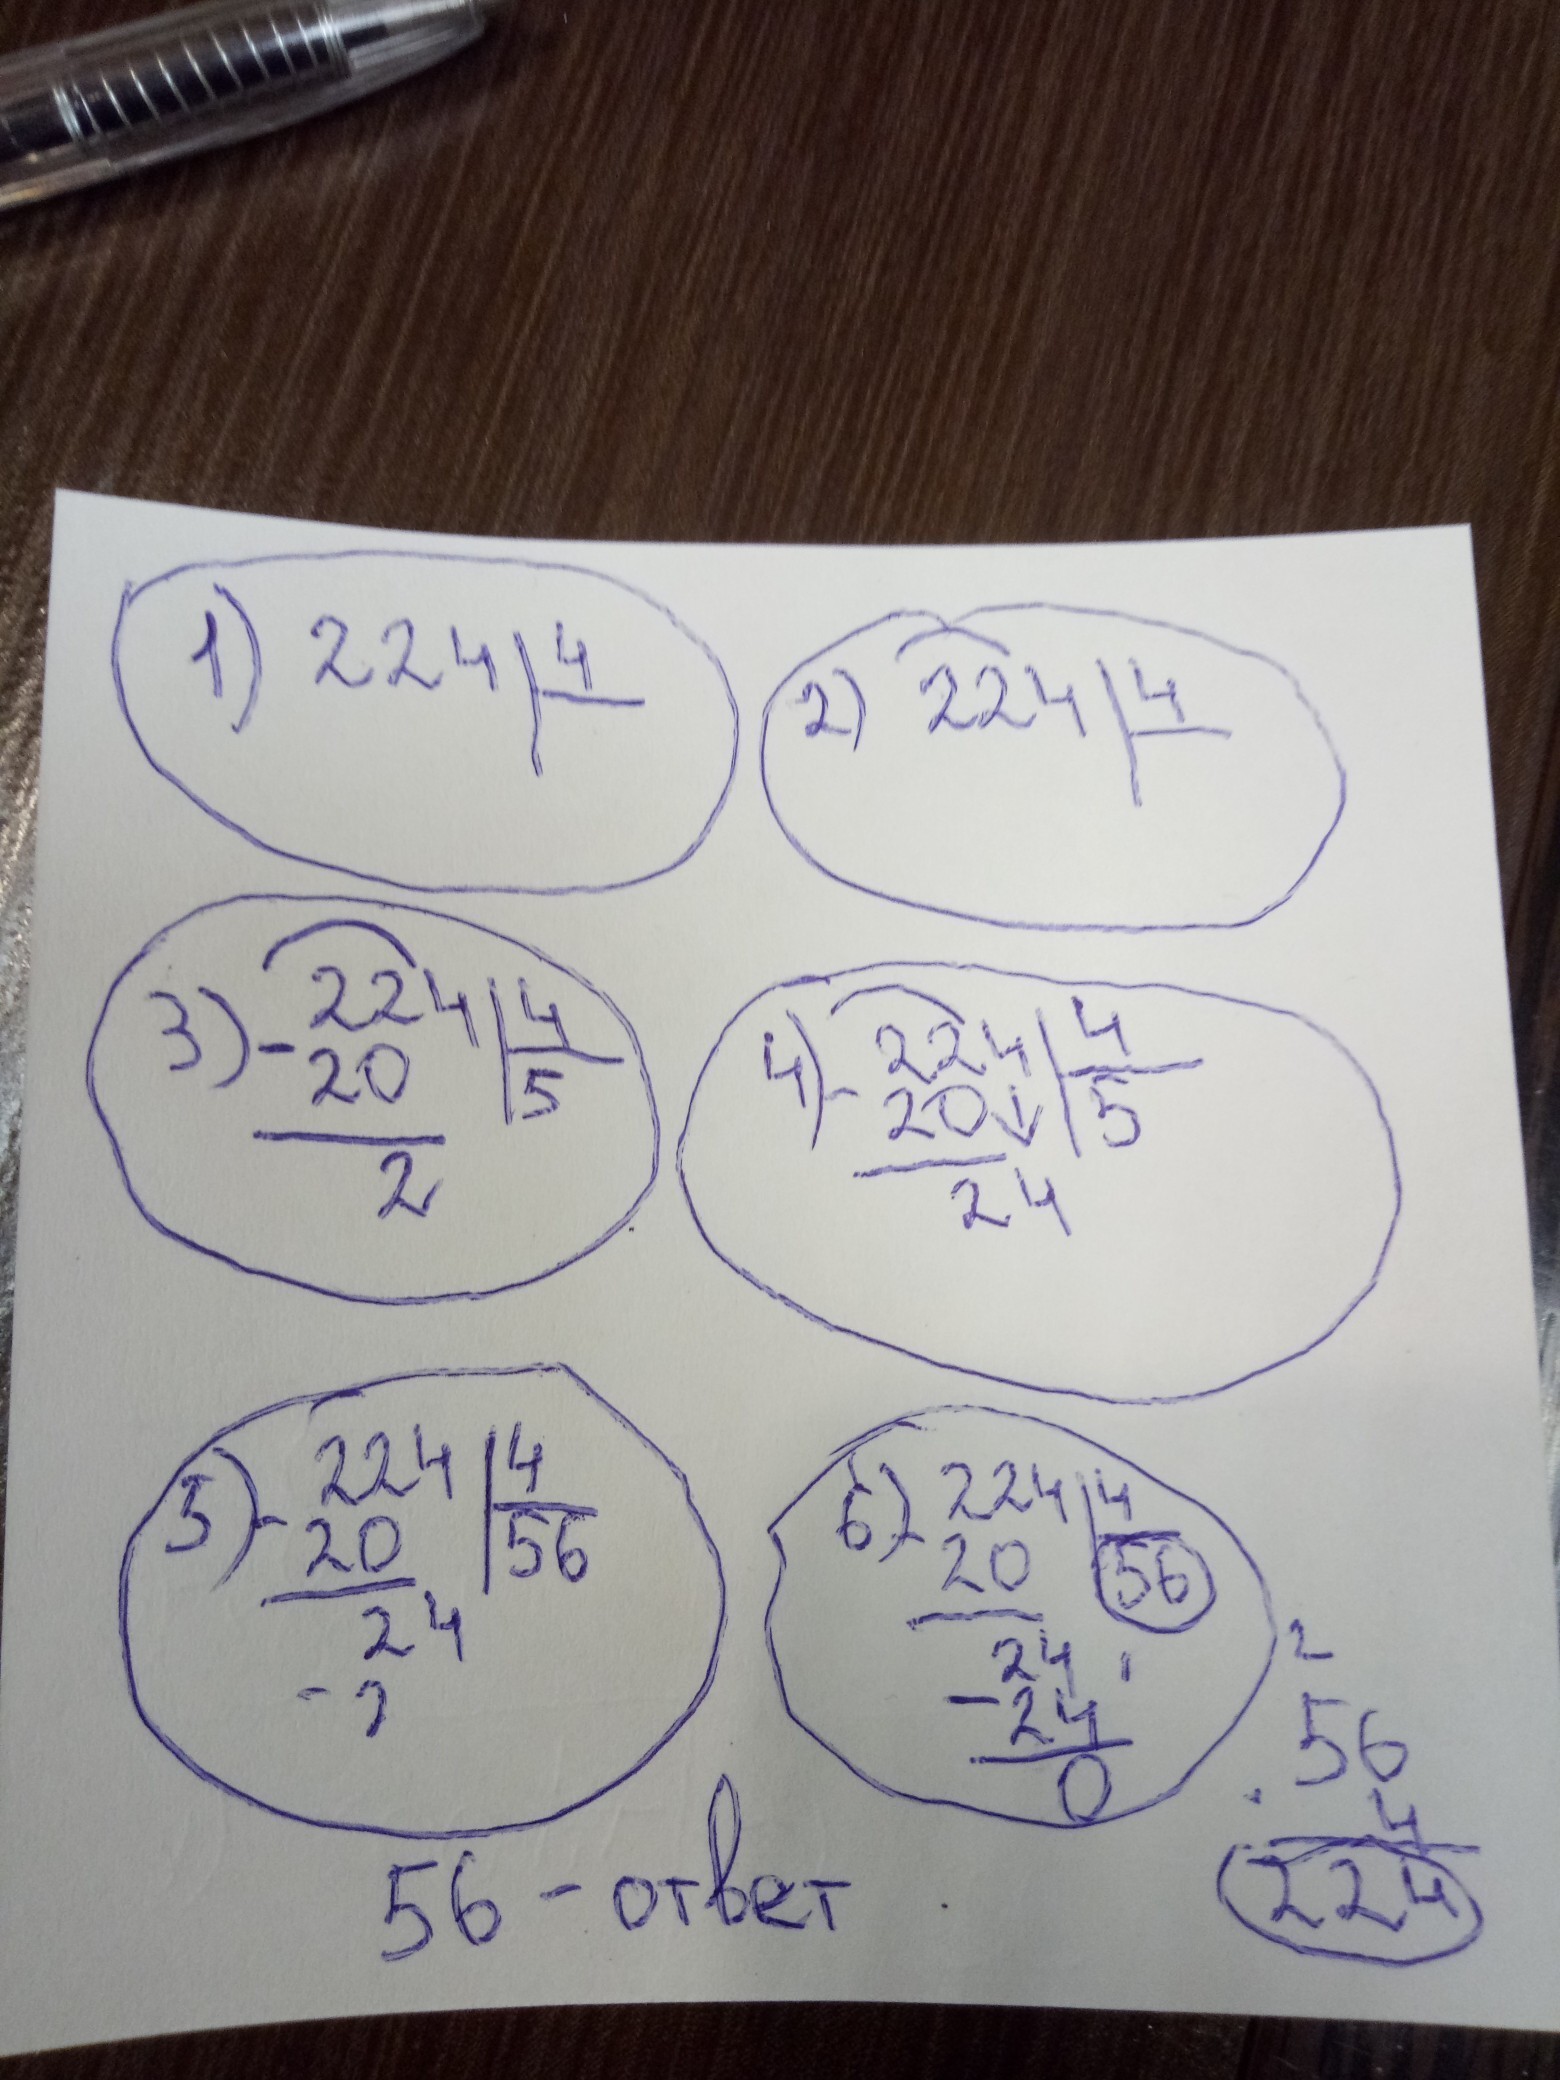 1) 224 | 4
2) 224 | 4
3) - 224 | 4
20 | 5
2
4) - 224 | 4
20↓ | 5
24
5) - 224 | 4
20 | 56
24
- 2
6) - 224 | 4
20 | 56
24
- 24
0
2
56
· 4
224
56 - ответ